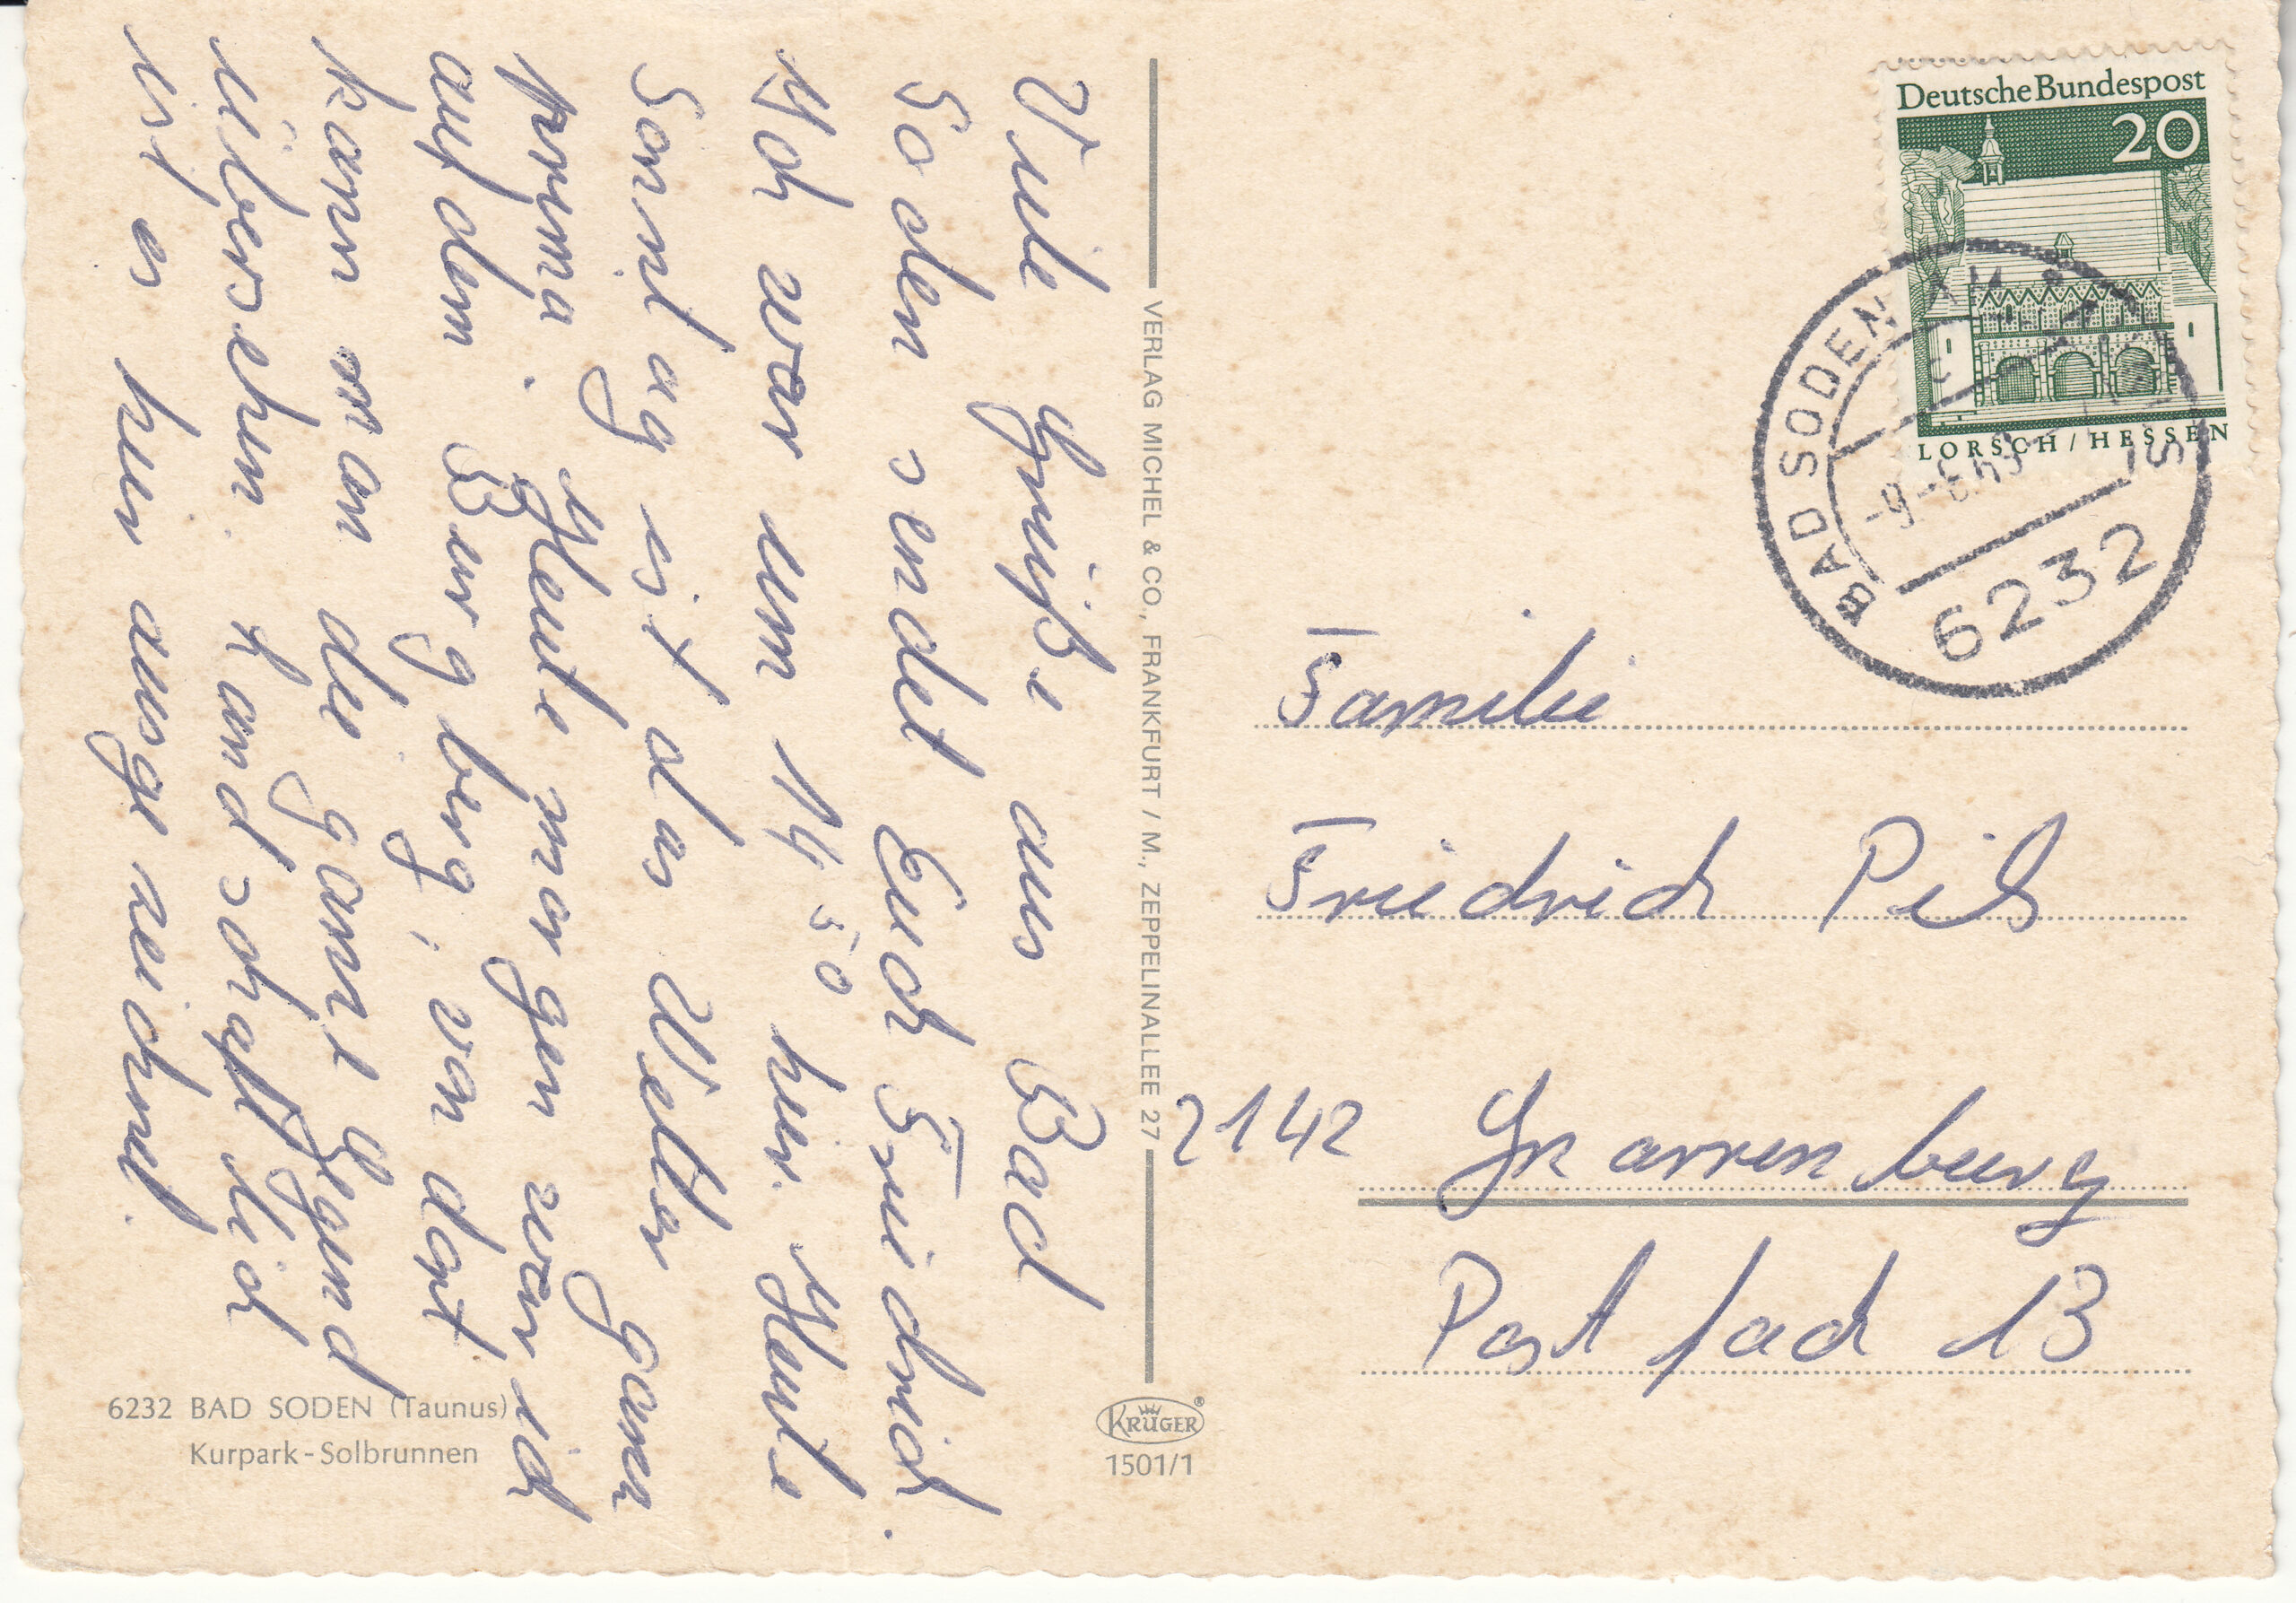 Viele Grüße aus Bad
Soden sendet Euch Friedrich.
Ich war um 14 50 hier. Heute
Sonntag ist das Wetter ganz
prima. Heute morgen war ich
auf dem Burgberg, von dort
kann man die ganze Gegend
übersehen. Landschaftlich
ist es hier ausgezeichnet.
6232 BAD SODEN (Taunus)
Kurpark-Solbrunnen
VERLAG MICHEL & CO., FRANKFURT / M., ZEPPELINALLEE 27
KRÜGER®
1501/1
Deutsche Bundespost
20
LORSCH / HESSEN
BAD SODEN
6232
Familie
Friedrich Pils
2142 Gnarrenburg
Postfach 13